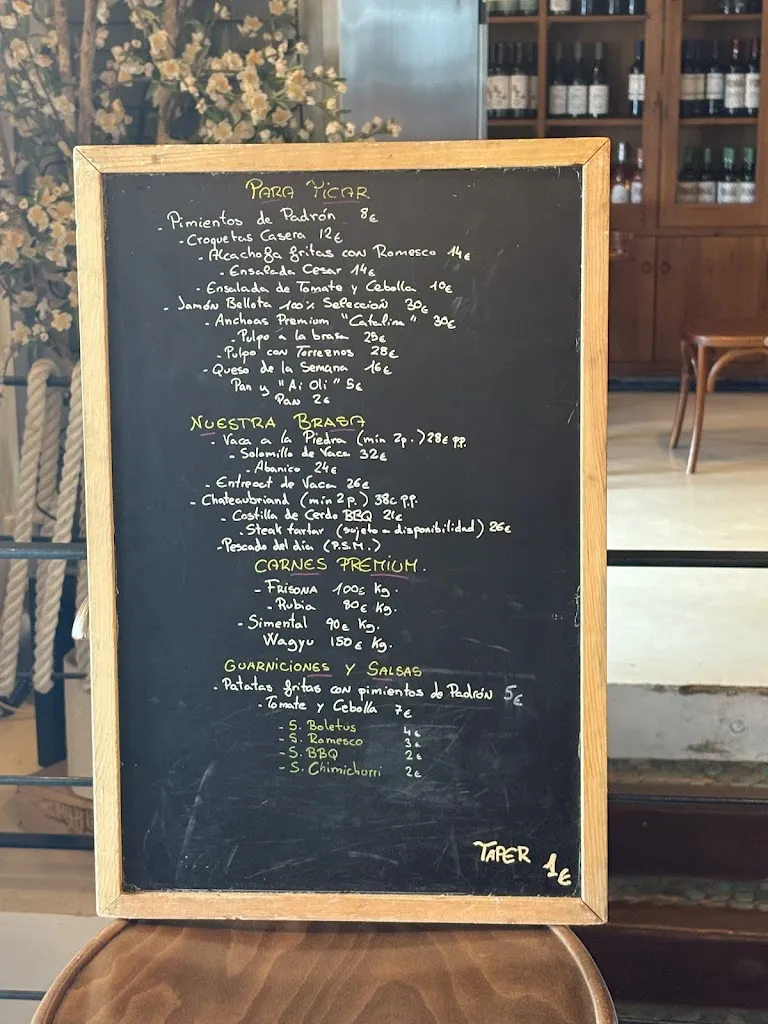 PARA PICAR
- Pimientos de Padrón 8€
- Croquetas Casera 12€
- Alcachofa fritas con Romesco 14€
- Ensalada Cesar 14€
- Ensalada de Tomate y Cebolla 10€
- Jamón Bellota 100% Selección 30€
- Anchoas Premium "Catalina" 30€
- Pulpo a la brasa 25€
- Pulpo con Torreznos 28€
- Queso de la Semana 16€
Pan y "Ai Oli" 5€
Pan 2€
NUESTRA BRASA
- Vaca a la Piedra (min 2p.) 28€ p.p.
- Solomillo de Vaca 32€
- Abanico 24€
- Entrecot de Vaca 26€
- Chateaubriand (min 2 p.) 38€ p.p.
- Costilla de Cerdo BBQ 21€
- Steak tartar (sujeto a disponibilidad) 26€
- Pescado del día (P.S.M.)
CARNES PREMIUM.
- FRISONA 100€ Kg.
- Rubia 80€ Kg.
- Simental 90€ Kg.
Wagyu 150€ Kg.
GUARNICIONES Y SALSAS
- Patatas fritas con pimientos de Padrón 5€
- Tomate y Cebolla 7€
- S. Boletus 4€
- S. Romesco 3€
- S. BBQ 2€
- S. Chimichurri 2€
TAPER 1€